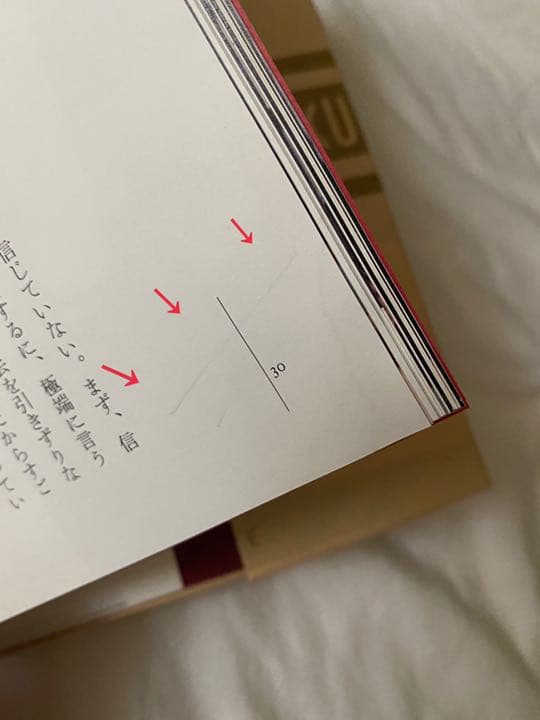 信じていない。まず、信
するに、極端に言う
を引きずりな
からすこ
てい
30
KU